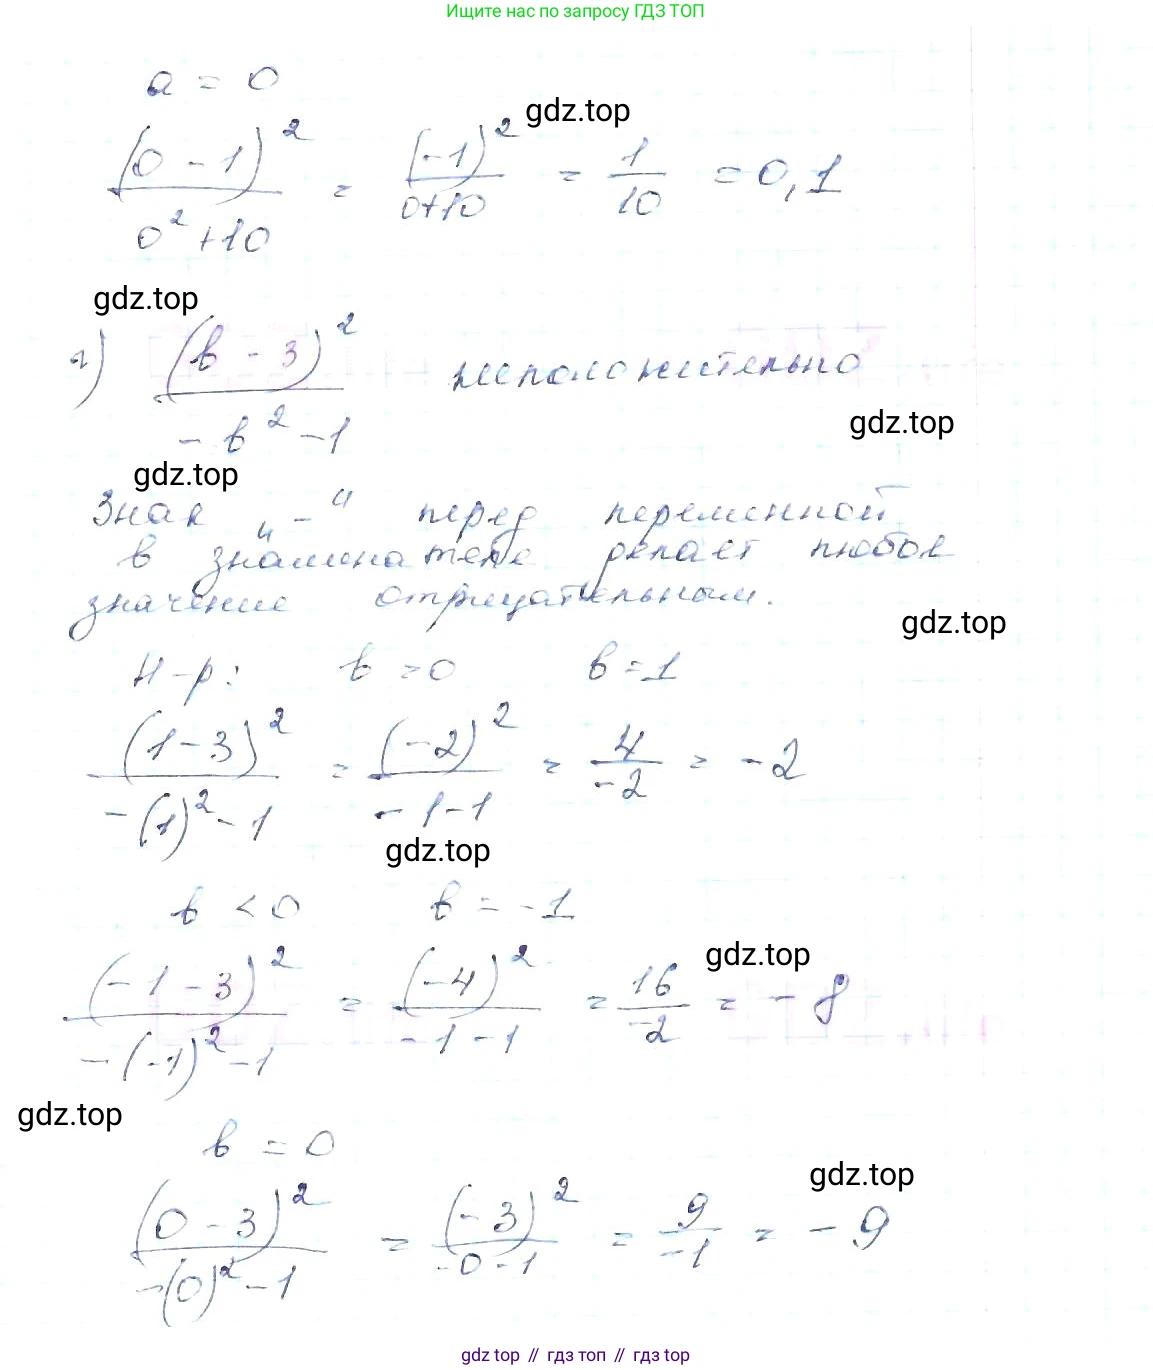 Ищите нас по запросу ГДЗ ТОП
a = 0
gdz.top
(0 - 1)² / 0² + 10 = (-1)² / 0+10 = 1/10 = 0,1
gdz.top
г) (b - 3)² / -b² - 1 неположительно
gdz.top
gdz.top
Знак „-“ перед переменной
в знаменателе делает любое
значение отрицательным.
gdz.top
Н-р: b > 0 b = 1
(1 - 3)² / -(1)² - 1 = (-2)² / -1-1 = 4/-2 = -2
gdz.top
b < 0 b = -1
gdz.top
(-1 - 3)² / -(-1)² - 1 = (-4)² / -1 - 1 = 16/-2 = -8
gdz.top
b = 0
gdz.top
(0 - 3)² / -(0)² - 1 = (-3)² / -0 - 1 = 9/-1 = -9
gdz top // гдз топ // гдз top